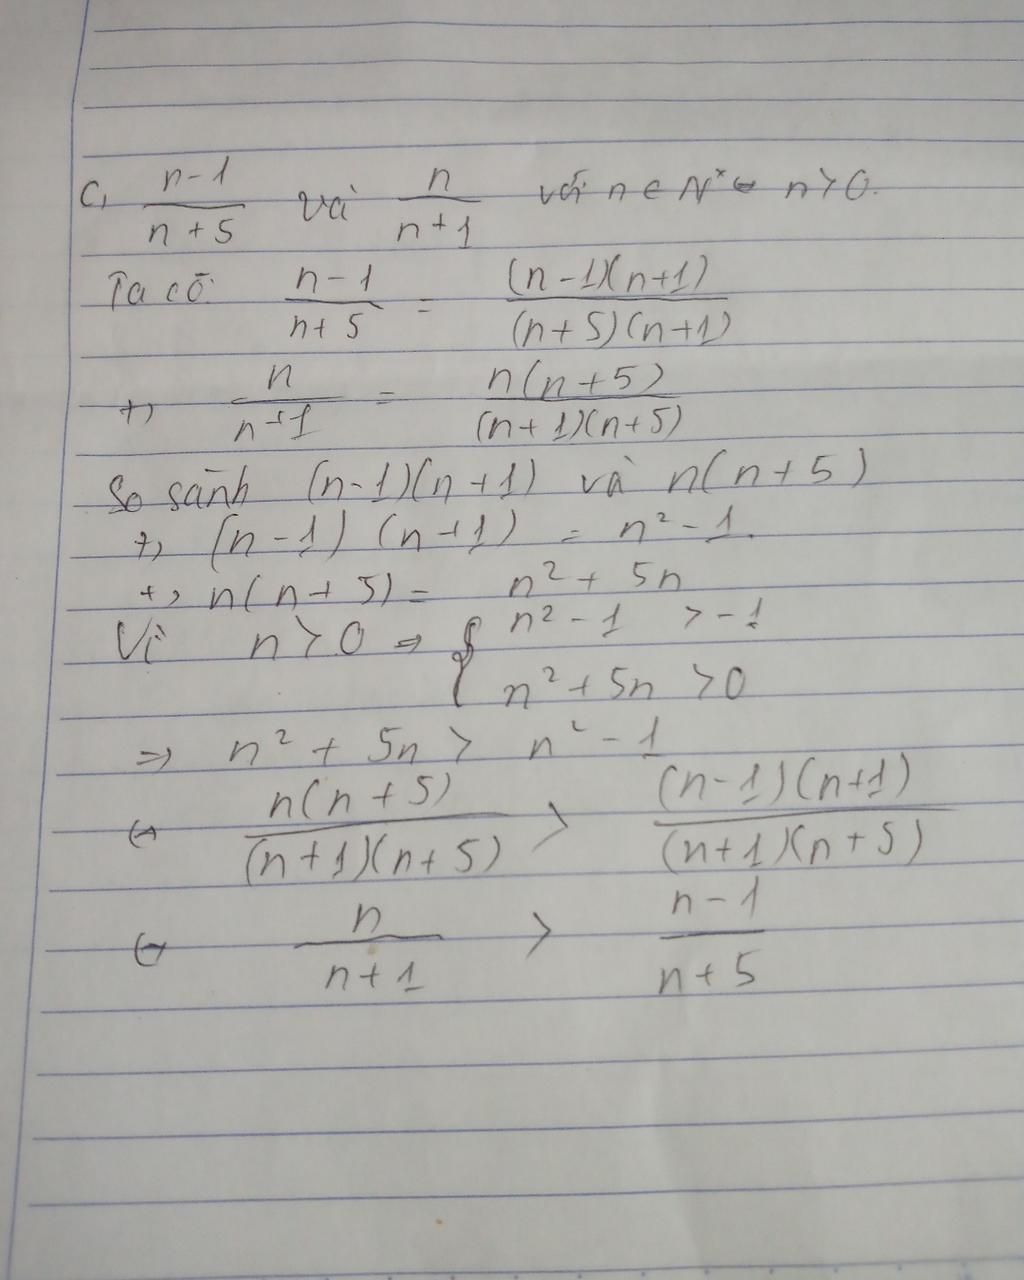 C, n-1/n+5 và n/n+1 với n ∈ N* ⇔ n>0.
Ta có: n-1/n+5 = (n-1)(n+1)/(n+5)(n+1)
+, n/n+1 = n(n+5)/(n+1)(n+5)
So sánh (n-1)(n+1) và n(n+5)
+, (n-1)(n+1) = n²-1.
+, n(n+5) = n²+5n
Vì n>0 ⇒ { n²-1 >-1
n²+5n >0
⇒ n²+5n > n²-1
⇔ n(n+5)/(n+1)(n+5) > (n-1)(n+1)/(n+1)(n+5)
⇔ n/n+1 > n-1/n+5